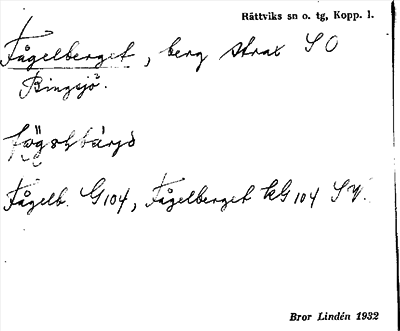 Rättviks sn o. tg, Kopp. l.
Fågelberget, berg strax S O
Bingsjö.
Fågelb. G104, Fågelberget kG104 SV.
Bror Lindén 1932